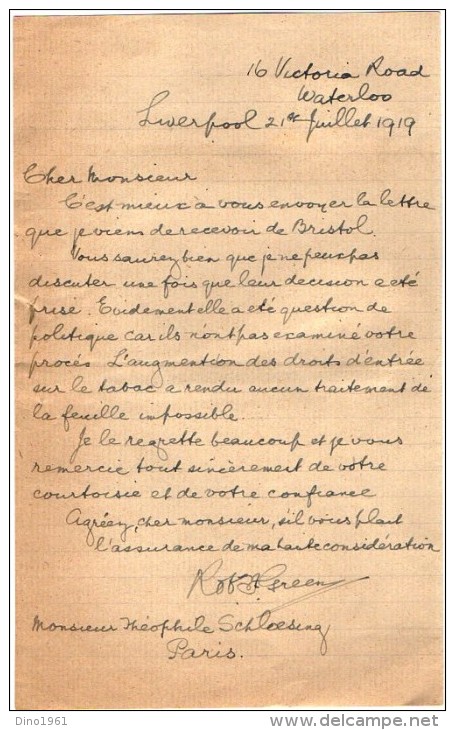 16 Victoria Road
Waterloo
Liverpool 21st Juillet 1919
Cher Monsieur
C'est mieux à vous envoyer la lettre
que je viens de recevoir de Bristol.
Vous saurez bien que je ne peux pas
discuter une fois que leur decision a été
prise. Evidement elle a été question de
politique car ils n'ont pas examiné votre
procés L'augmention des droits d'entrée
sur le tabac a rendu aucun traitement de
la feuille impossible.
Je le regrette beaucoup et je vous
remercie tout sincèrement de votre
courtoisie et de votre confiance
Agréez, cher monsieur, s'il vous plait
l'assurance de ma haute considération
Robt Green
Monsieur Théophile Schloesing
Paris.
Dino1961
delcampe.net